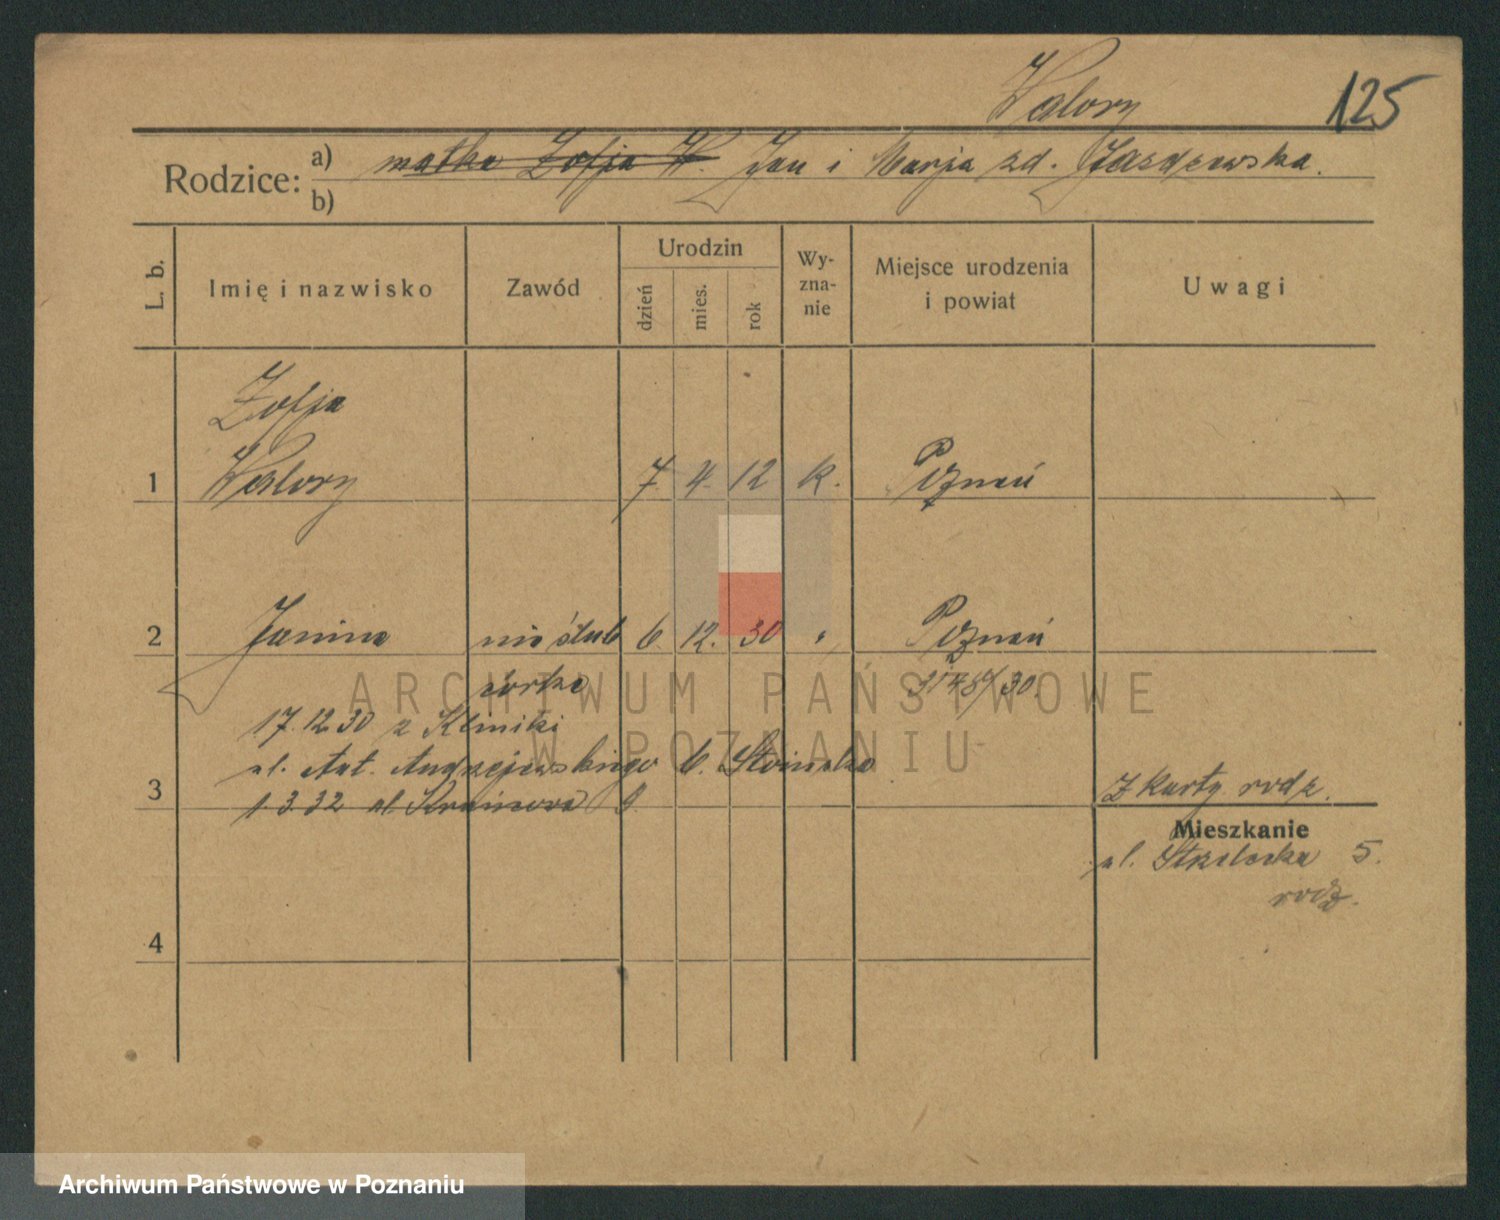 Walory 125
Rodzice: a) matka Zofja W. Jan i Marja zd. Jazdzewska.
b)
L. b. Imię i nazwisko Zawód Urodzin dzień mies. rok Wy-zna-nie Miejsce urodzenia i powiat Uwagi
Zofja
1 Walory 7. 4. 12 k. Poznań
2 Janina nieślub 6. 12. 30 " Poznań
córka
17.12.30 z Kliniki
ul. Ant. Andrzejewskiego 6. Słoińska
3 1.3.32 ul.
Z karty rodz.
Mieszkanie
ul. Strzelecka 5.
rodz.
4
ARCHIWUM PAŃSTWOWE
W POZNANIU
Archiwum Państwowe w Poznaniu